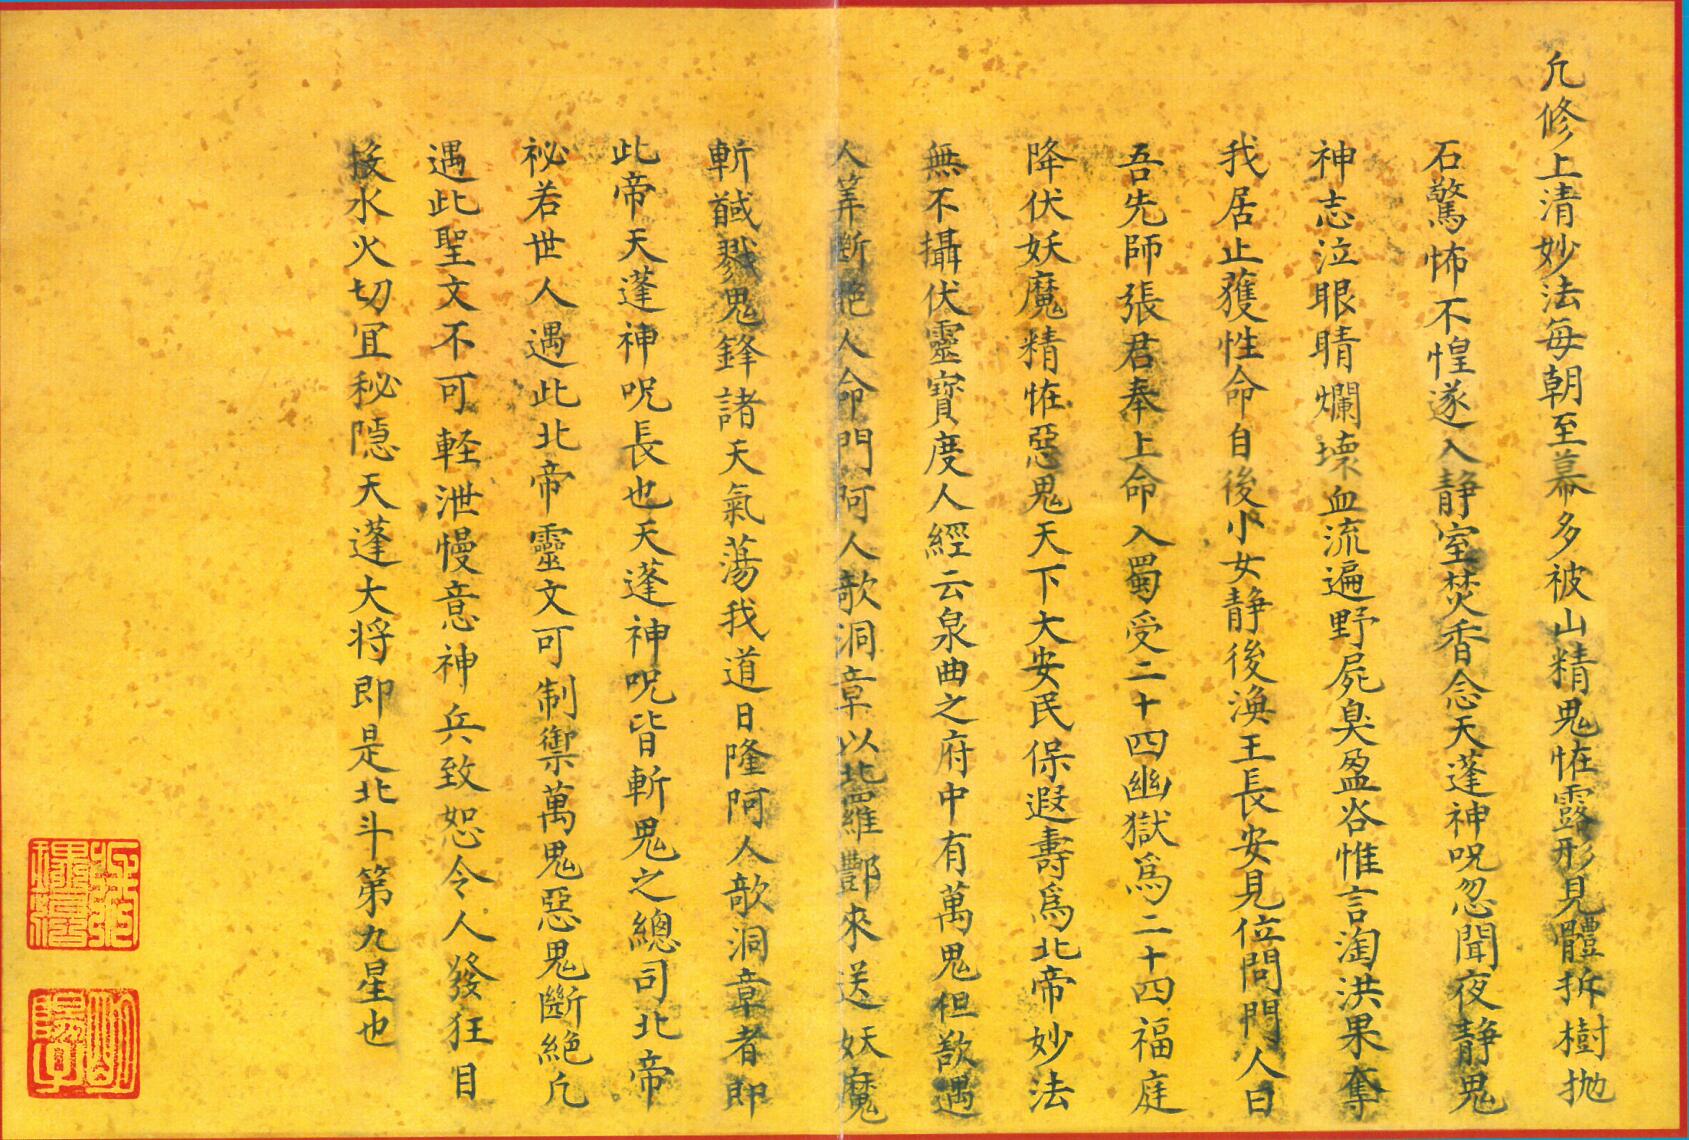 凢修上清妙法每朝至暮多被山精鬼恠露形見體拆樹拋
石驚怖不惶遂入静室焚香念天蓬神呪忽聞夜静鬼
神志泣眼睛爛壊血流遍野屍臭盈谷惟言淘洪果奪
我居止獲性命自後小女静後渙王長安見位問門人曰
吾先師張君奉上命入蜀受二十四幽獄爲二十四福庭
降伏妖魔精恠惡鬼天下大安民保遐壽爲北帝妙法
無不攝伏靈寶度人經云泉曲之府中有萬鬼但歆遏
人筭斷絶人命門阿人歌洞章以北羅酆來送妖魔
斬馘戮鬼鋒諸天氣蕩我道日隆阿人歌洞章者即
此帝天蓬神呪長也天蓬神呪皆斬鬼之總司北帝
祕若世人遇此北帝靈文可制禦萬鬼惡鬼斷絶凢
遇此聖文不可軽泄慢意神兵致恕令人發狂目
投水火切宜秘隠天蓬大将即是北斗第九星也